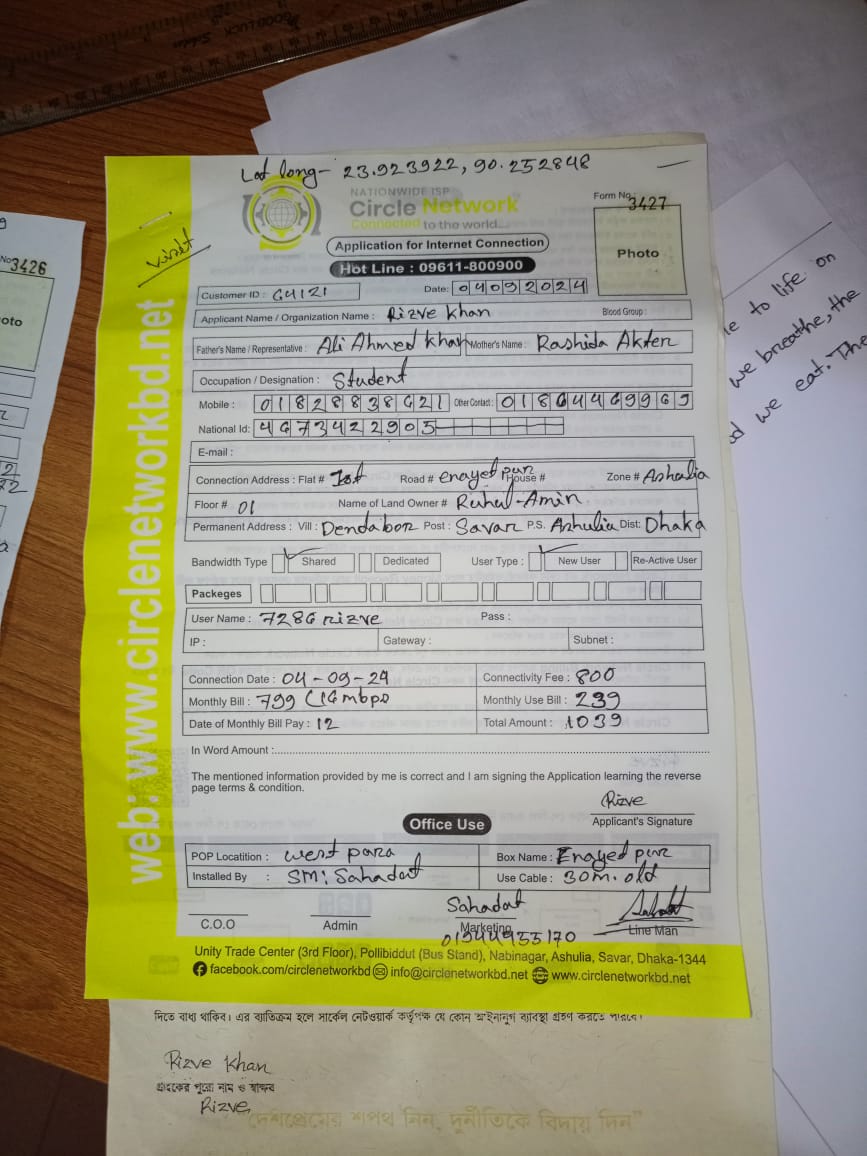 Lat long- 23.923922, 90.252848
NATIONWIDE ISP
Circle Network
Connected to the world...
Form No: 3427
Application for Internet Connection
Hot Line : 09611-800900
Photo
visit
Customer ID : G4121
Date: 04092024
Applicant Name / Organization Name : Rizve khan Blood Group :
Father's Name / Representative : Ali Ahmed khan Mother's Name : Rashida Akter
Occupation / Designation : Student
Mobile : 01828838621 Other Contact : 01864469969
National Id: 4673422905
E-mail :
Connection Address : Flat # 1st Road # enayet pur House # Zone # Ashulia
Floor # 01 Name of Land Owner # Ruhul-Amin
Permanent Address : Vill : Dendabor Post : Savar P.S. Ashulia Dist: Dhaka
Bandwidth Type Shared Dedicated User Type : New User Re-Active User
Packeges
User Name : 7286rizve Pass :
IP : Gateway : Subnet :
Connection Date : 04-09-24 Connectivity Fee : 800
Monthly Bill : 799 (16mbps Monthly Use Bill : 239
Date of Monthly Bill Pay : 12 Total Amount : 1039
In Word Amount :
The mentioned information provided by me is correct and I am signing the Application learning the reverse
page terms & condition.
Rizve
Applicant's Signature
Office Use
POP Locatition : west para Box Name : Enayed pur
Installed By : SM: Sahadat Use Cable : 30m. old
Sahadat
C.O.O Admin Marketing Line Man
01944955170
Unity Trade Center (3rd Floor), Pollibiddut (Bus Stand), Nabinagar, Ashulia, Savar, Dhaka-1344
facebook.com/circlenetworkbd info@circlenetworkbd.net www.circlenetworkbd.net
web: www.circlenetworkbd.net
দিতে বাধ্য থাকিব। এর ব্যতিক্রম হলে সার্কেল নেটওয়ার্ক কর্তৃপক্ষ যে কোন আইনানুগ ব্যবস্থা গ্রহণ করতে পারবে।
Rizve Khan
গ্রাহকের পুরো নাম ও স্বাক্ষর
Rizve
"দেশপ্রেমের শপথ নিন, দুর্নীতিকে বিদায় দিন"
No 3426
oto
le to life on
we breathe, the
d we eat. The
GOOD LUCK